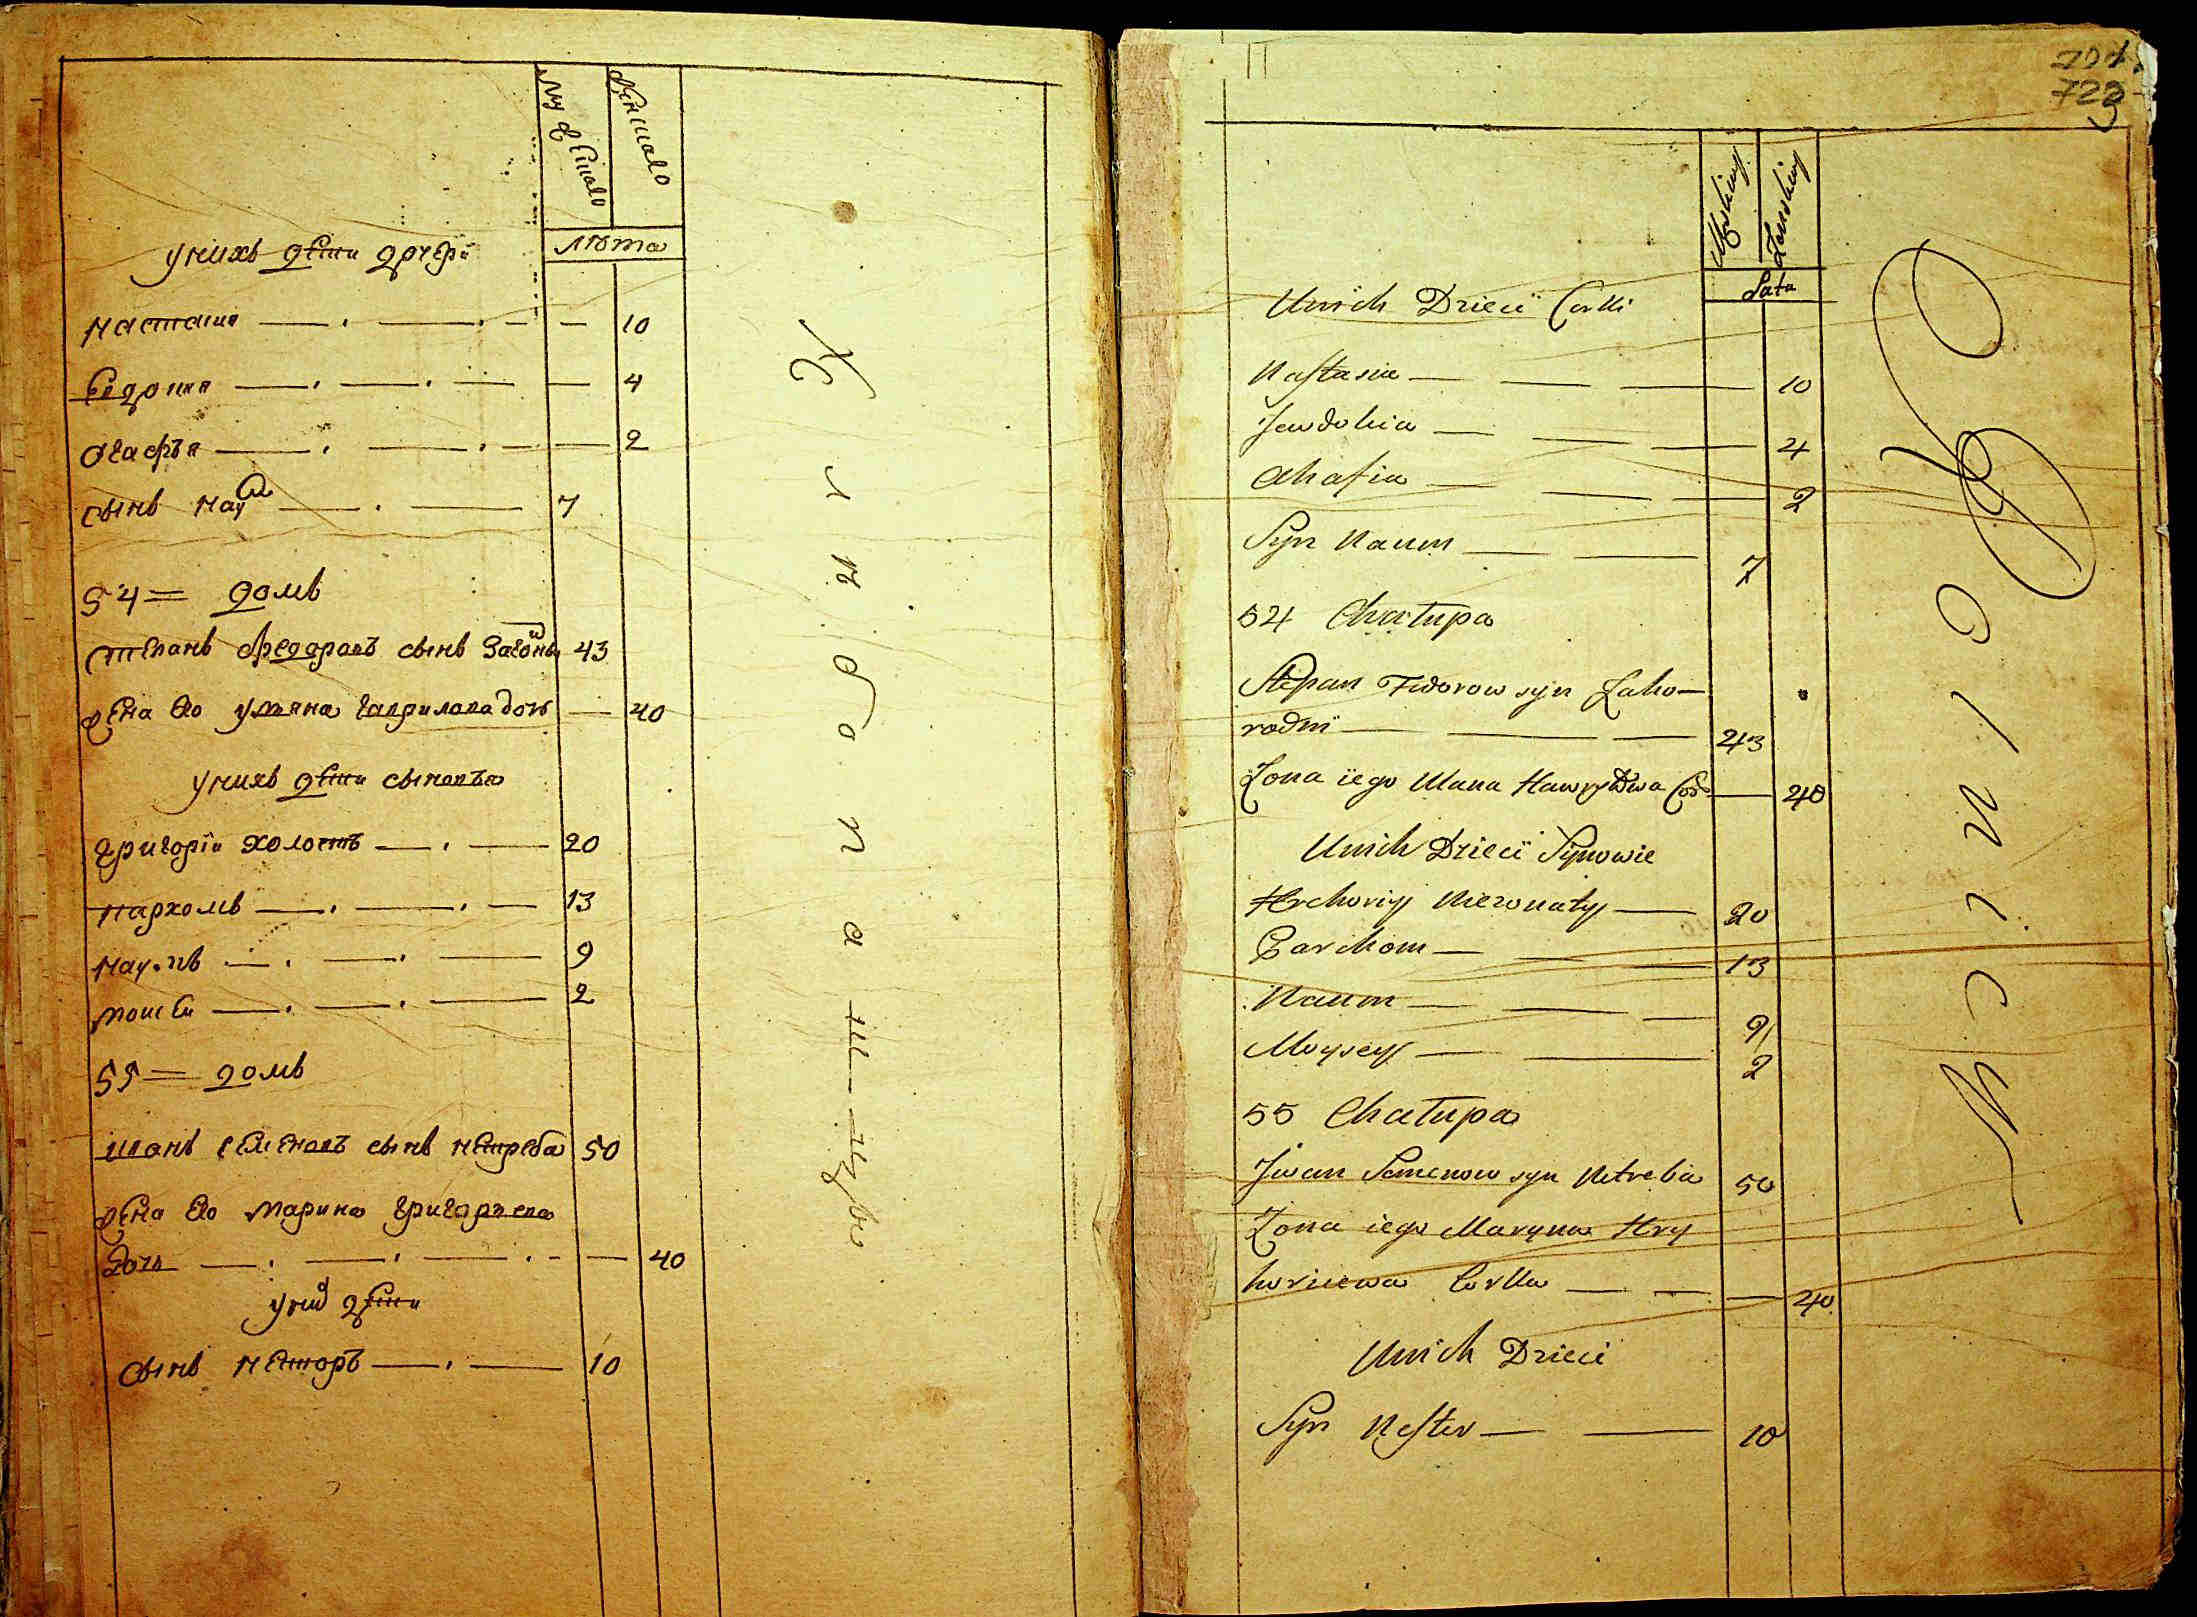 мужеско
женско
лѣта
у нихъ дѣти дочери
настасия 10
Евдокия 4
огафъя 2
сынъ наум 7
54 = домъ
степанъ федоровъ сынъ загоднъ 43
жена его уляна гаврилова дочъ 40
у нихъ дѣти сыновья
григорiи холостъ 20
пархомъ 13
наумъ 9
моисеи 2
55 = домъ
иванъ семеновъ сынъ нетреба 50
жена его марина григоръева
дочъ 40
у них дети
сынъ несторъ 10
К л ѣ б о п а ш цы
11
701
722
3
Męskiey
Żenskiey
Lata
Unich Dzieci Corki
Nastasia 10
Jewdokia 4
Ahafia 2
Syn Naum 7
54 Chałupa
Stepan Fedorow syn Zaho-
rodni 43
Żona iego Ulana Hawryłowa Cor 40
Unich Dzieci Synowie
Hrehoriy Niezonaty 20
Parchom 13
Naum 9
Moysey 2
55 Chałupa
Jwan Semenow syn Netreba 50
Żona iego Maryna Hry
horiiewa Corka 40
Unich Dzieci
Syn Nester 10